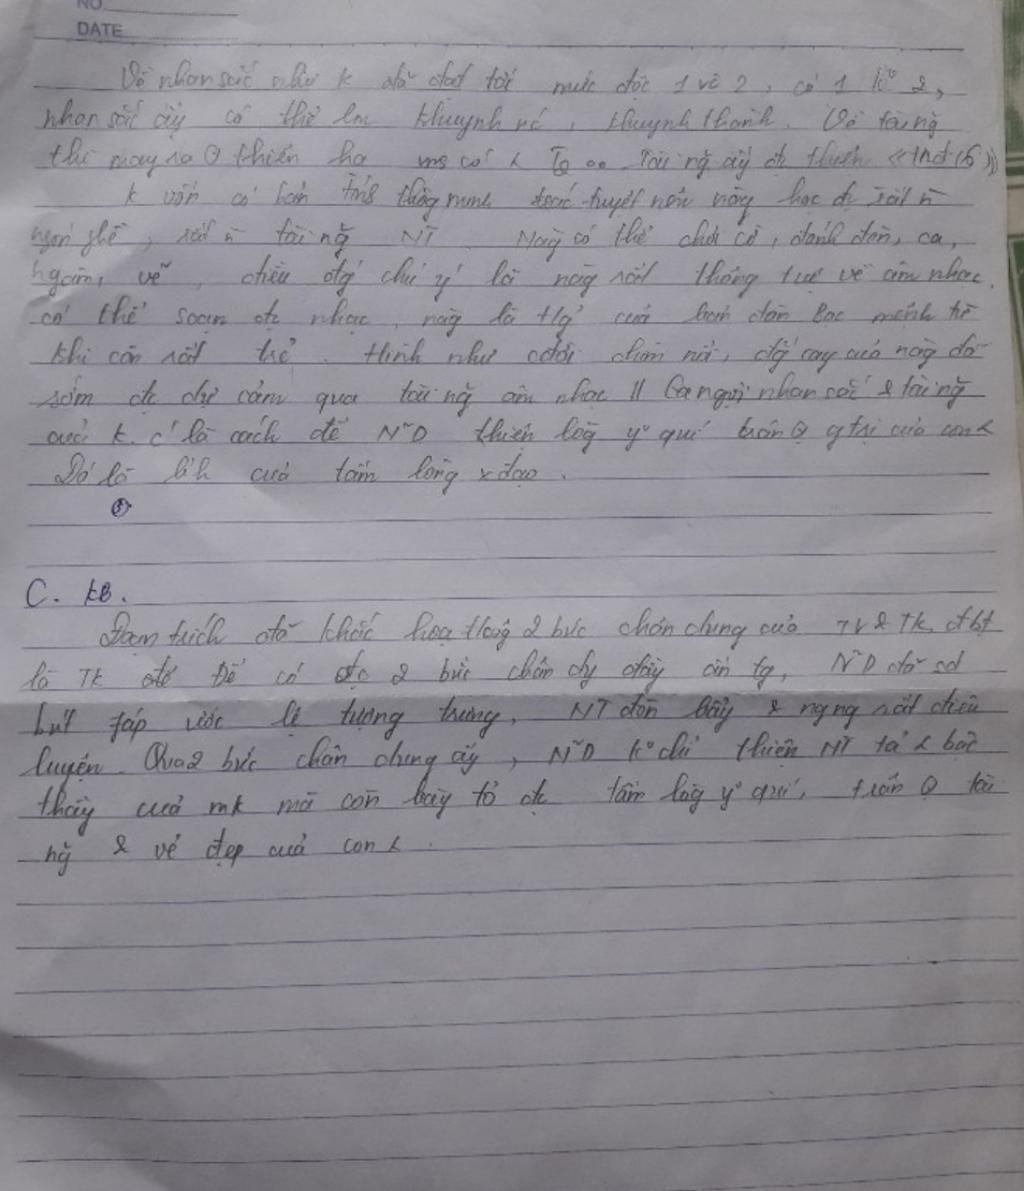 NO
DATE
Về nhan sắc như k đã đạt tới mức độc 1 vô 2, có 1 k° 2,
nhan sắc ấy có thể lm khuynh nc, khuynh thành. Về tài ng̃
thì may ra thiên hạ ms có Tài ng̃ ấy dc thiên
k vốn có bản tính thông minh tuyệt nên nàng học dc rất n
ngón ghề, rất n tài ng̃ NT Nàng có thể chơi cờ, đánh đàn, ca,
ngâm, vẽ, điều đg chú ý là nàng rất thông tuệ về âm nhạc,
có thể soạn dc nhạc, nàng là t/g của bản đàn Bạc mệnh từ
khi còn rất trẻ. Hình như cuộc đời chìm nổi, đg cay của nàng đã
sớm dc dự cảm qua tài ng̃ âm nhạc // Ca ngợi nhan sắc & tài ng̃
của k. c' là cách để N~D lòg y° quí trân giá trị của con <
Đó là của tấm lòng x đạo.
C. KB.
Đoạn trích đã khắc họa 2 bức chân dung của TV & TK, đbt
là TK Để có dc 2 bức chân dg đầy ấn tg, N~D đã sd
bút fáp ước lệ tượng trưng, NT đòn bẩy & ng ng rất điêu
luyện. Qua 2 bức chân dung ấy, N~D k° chỉ NT tả < bậc
thầy của mk mà còn bày tỏ dc tấm lòg y° quí, trân tài
ng̃ & vẻ đẹp của con <.